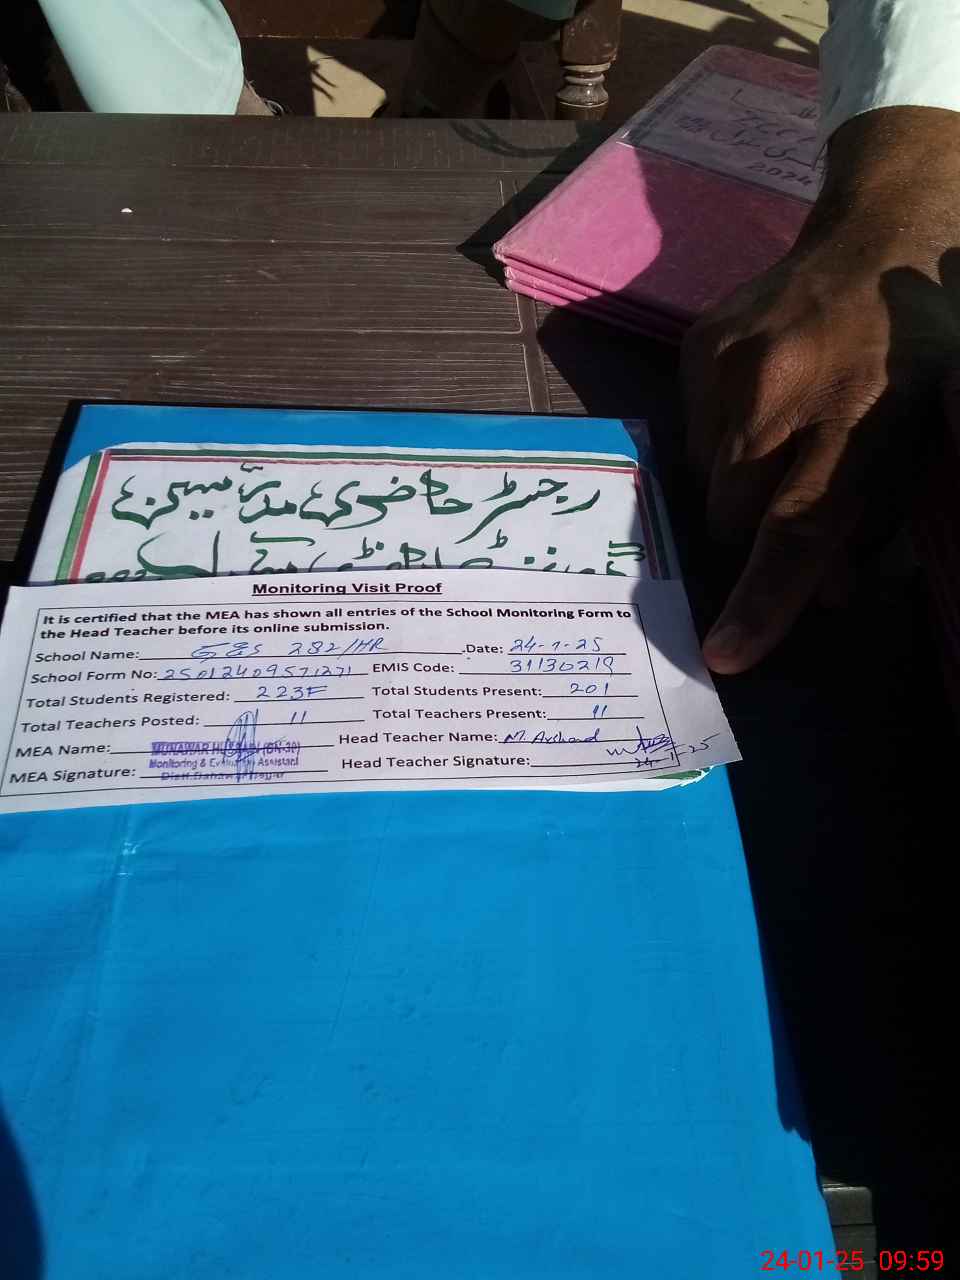 2024
رجسٹر حاضری مدرسین
Monitoring Visit Proof
It is certified that the MEA has shown all entries of the School Monitoring Form to
the Head Teacher before its online submission.
School Name: GES 282/HR Date: 24-1-25
School Form No: 25012409571271 EMIS Code: 31130219
Total Students Registered: 223 Total Students Present: 201
Total Teachers Posted: 11 Total Teachers Present: 11
MEA Name: MUNAWAR HUSSAIN Head Teacher Name: M. Arshad
Monitoring & Evaluation Assistant
MEA Signature: Head Teacher Signature:
24-1-25
24-01-25 09:59